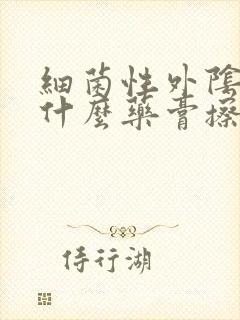 細菌性外陰
什麼藥膏擦
侍行湖